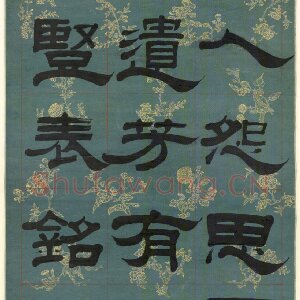 人怨思
遺芳有
豎表銘
Shufawang.CN